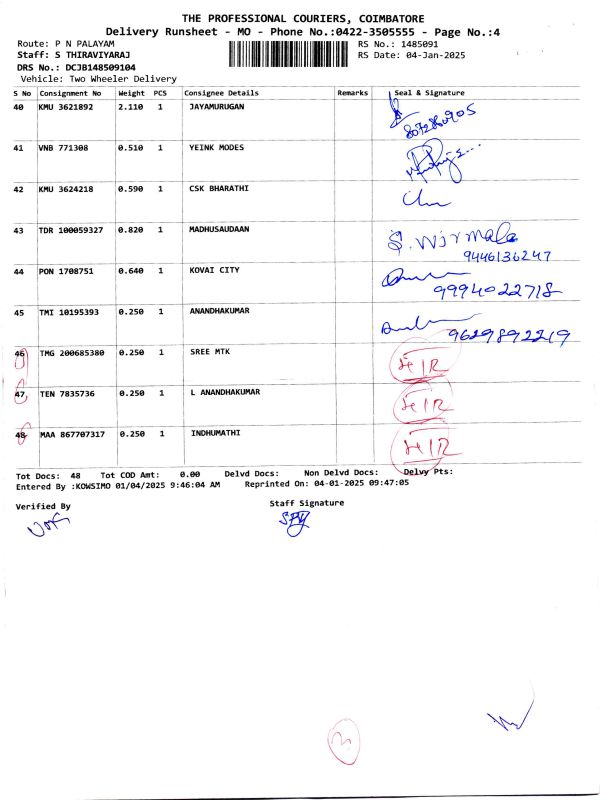 THE PROFESSIONAL COURIERS, COIMBATORE
Delivery Runsheet - MO - Phone No.:0422-3505555 - Page No.:4
Route: P N PALAYAM RS No.: 1485091
Staff: S THIRAVIYARAJ RS Date: 04-Jan-2025
DRS No.: DCJB148509104
Vehicle: Two Wheeler Delivery
S No Consignment No Weight PCS Consignee Details Remarks Seal & Signature
40 KMU 3621892 2.110 1 JAYAMURUGAN
41 VNB 771308 0.510 1 YEINK MODES
42 KMU 3624218 0.590 1 CSK BHARATHI
43 TDR 100059327 0.820 1 MADHUSAUDAAN S. Nirmala
9446136247
44 PON 1708751 0.640 1 KOVAI CITY
9994022718
45 TMI 10195393 0.250 1 ANANDHAKUMAR
9629892219
46 TMG 200685380 0.250 1 SREE MTK
47 TEN 7835736 0.250 1 L ANANDHAKUMAR
48 MAA 867707317 0.250 1 INDHUMATHI
Tot Docs: 48 Tot COD Amt: 0.00 Delvd Docs: Non Delvd Docs: Delvy Pts:
Entered By :KOWSIMO 01/04/2025 9:46:04 AM Reprinted On: 04-01-2025 09:47:05
Verified By Staff Signature
3